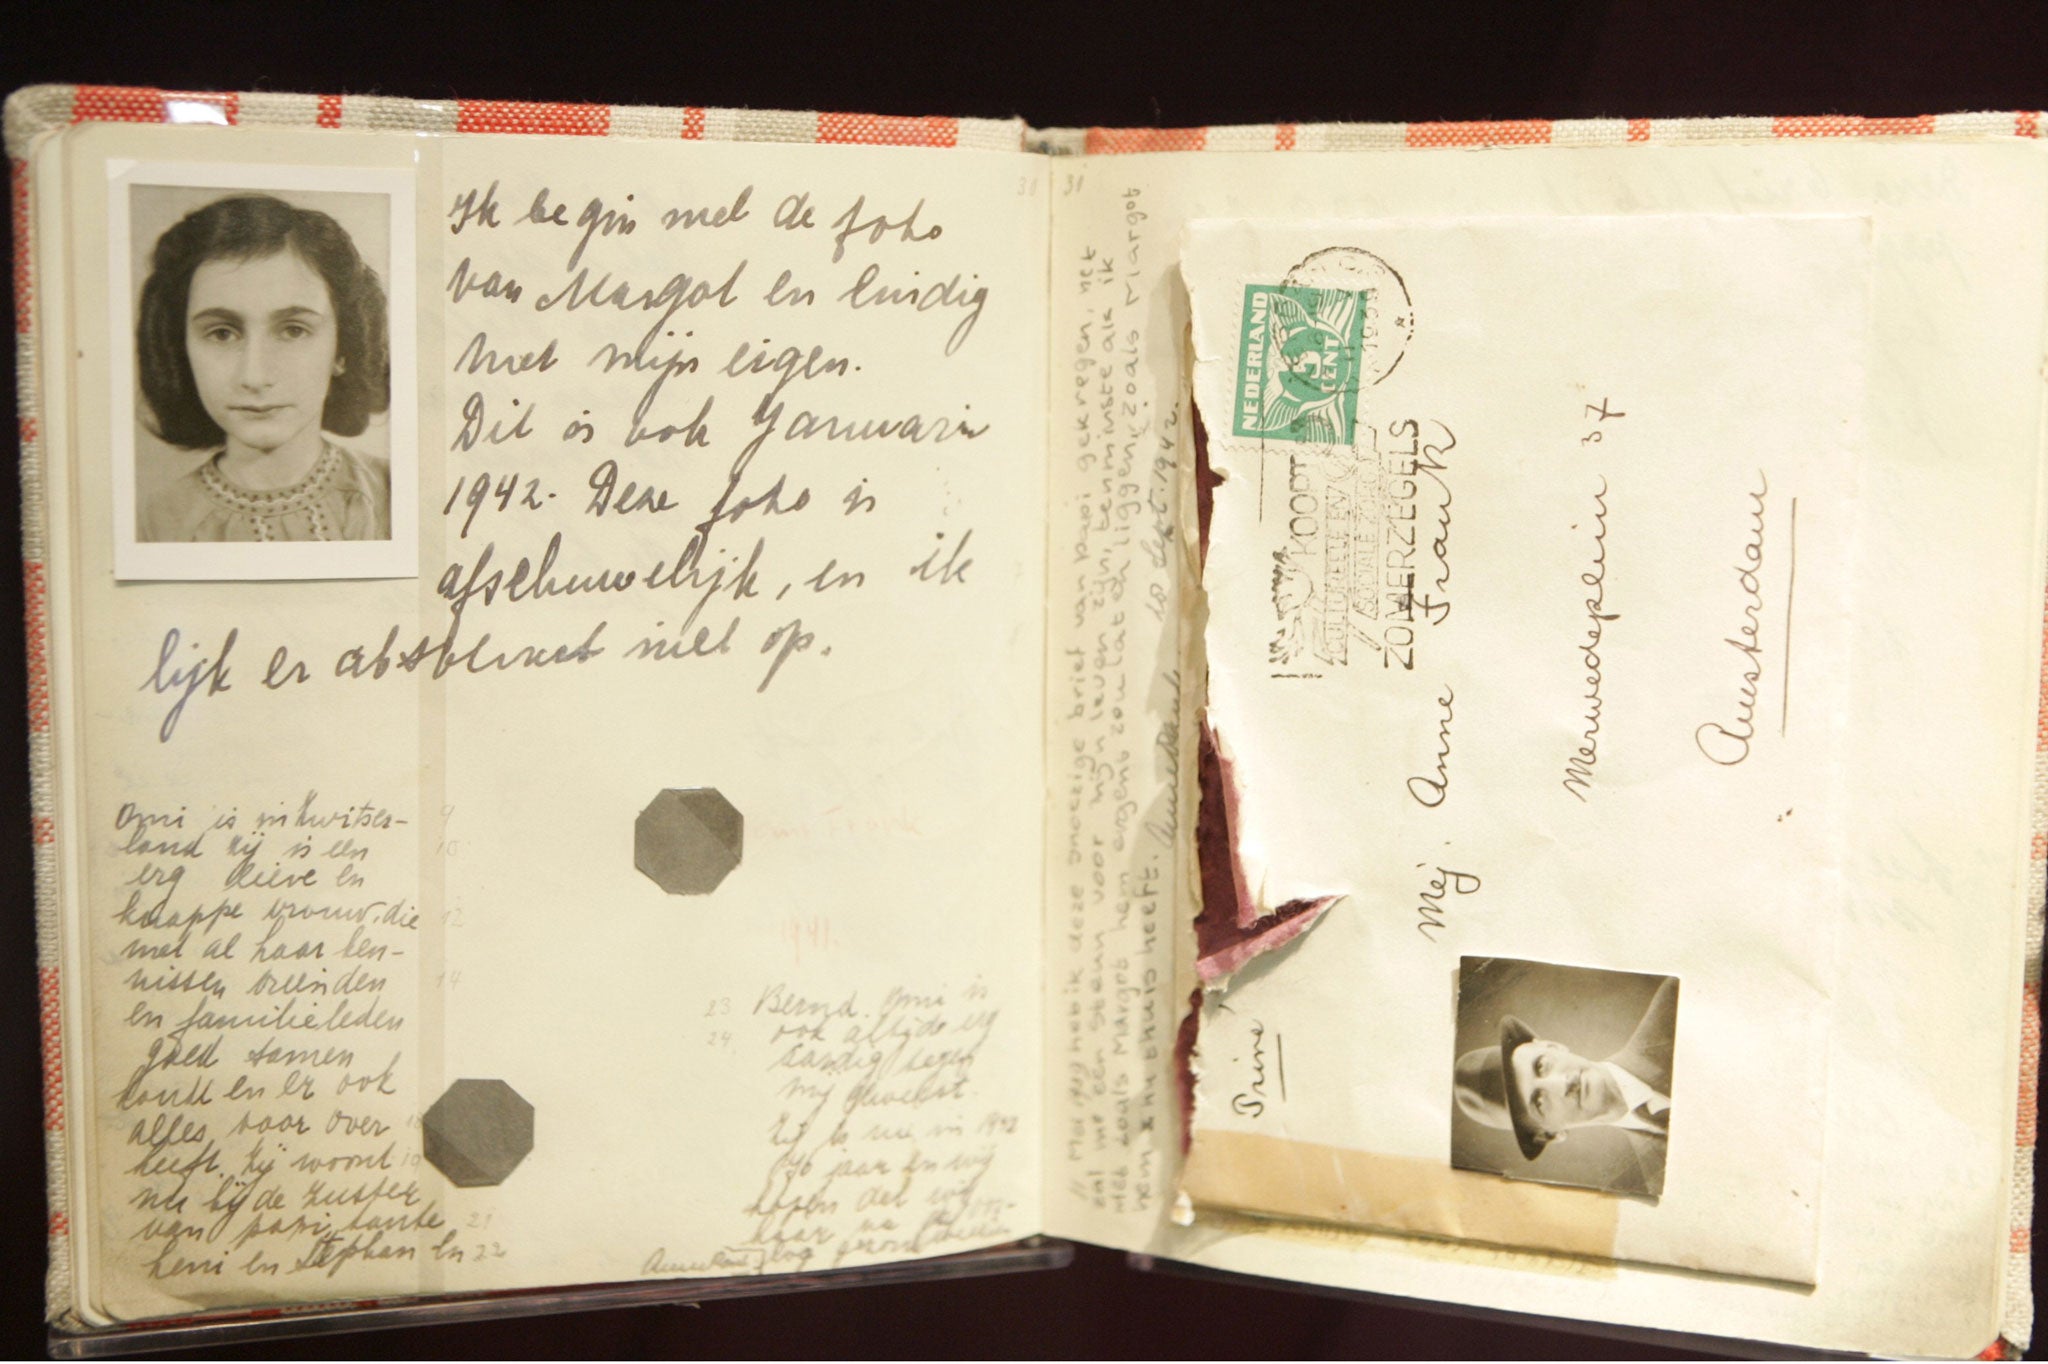 Ik begin met de foto
van Margot en eindig
met mijn eigen.
Dit is ook Januari
1942. Deze foto is
afschuwelijk, en ik
lijk er absoluut niet op.
Omi is in Zwitser-
land zij is een
erg lieve en
knappe vrouw, die
met al haar ken-
nissen vrienden
en familieleden
goed samen
kondt en er ook
alles voor over
heeft. Zij woont
nu bij de zuster
van papi, tante
Leni en Stephan en
9
10
12
14
18
19
21
22
23
24
Bernd. Omi is
ook altijd erg
aardig tegen
mij geweest.
Zij is nu in 1942
jaar en wij
hopen dat wij
haar na de oor-
log
31
31
heb ik deze snoezige brief van papi gekregen, het
zal me een steun voor mijn leven zijn, tenminste als ik
het zoals Margot hem ergens zou laten liggen, zoals Margot
hem n thuis heeft.
10 Sept. 1942.
NEDERLAND
5
CENT
1939
KOOPT
CULTUREELE EN
SOCIALE ZORG
ZOMERZEGELS
Mej. Anne Frank
Merwedeplein 37
Amsterdam
Privé